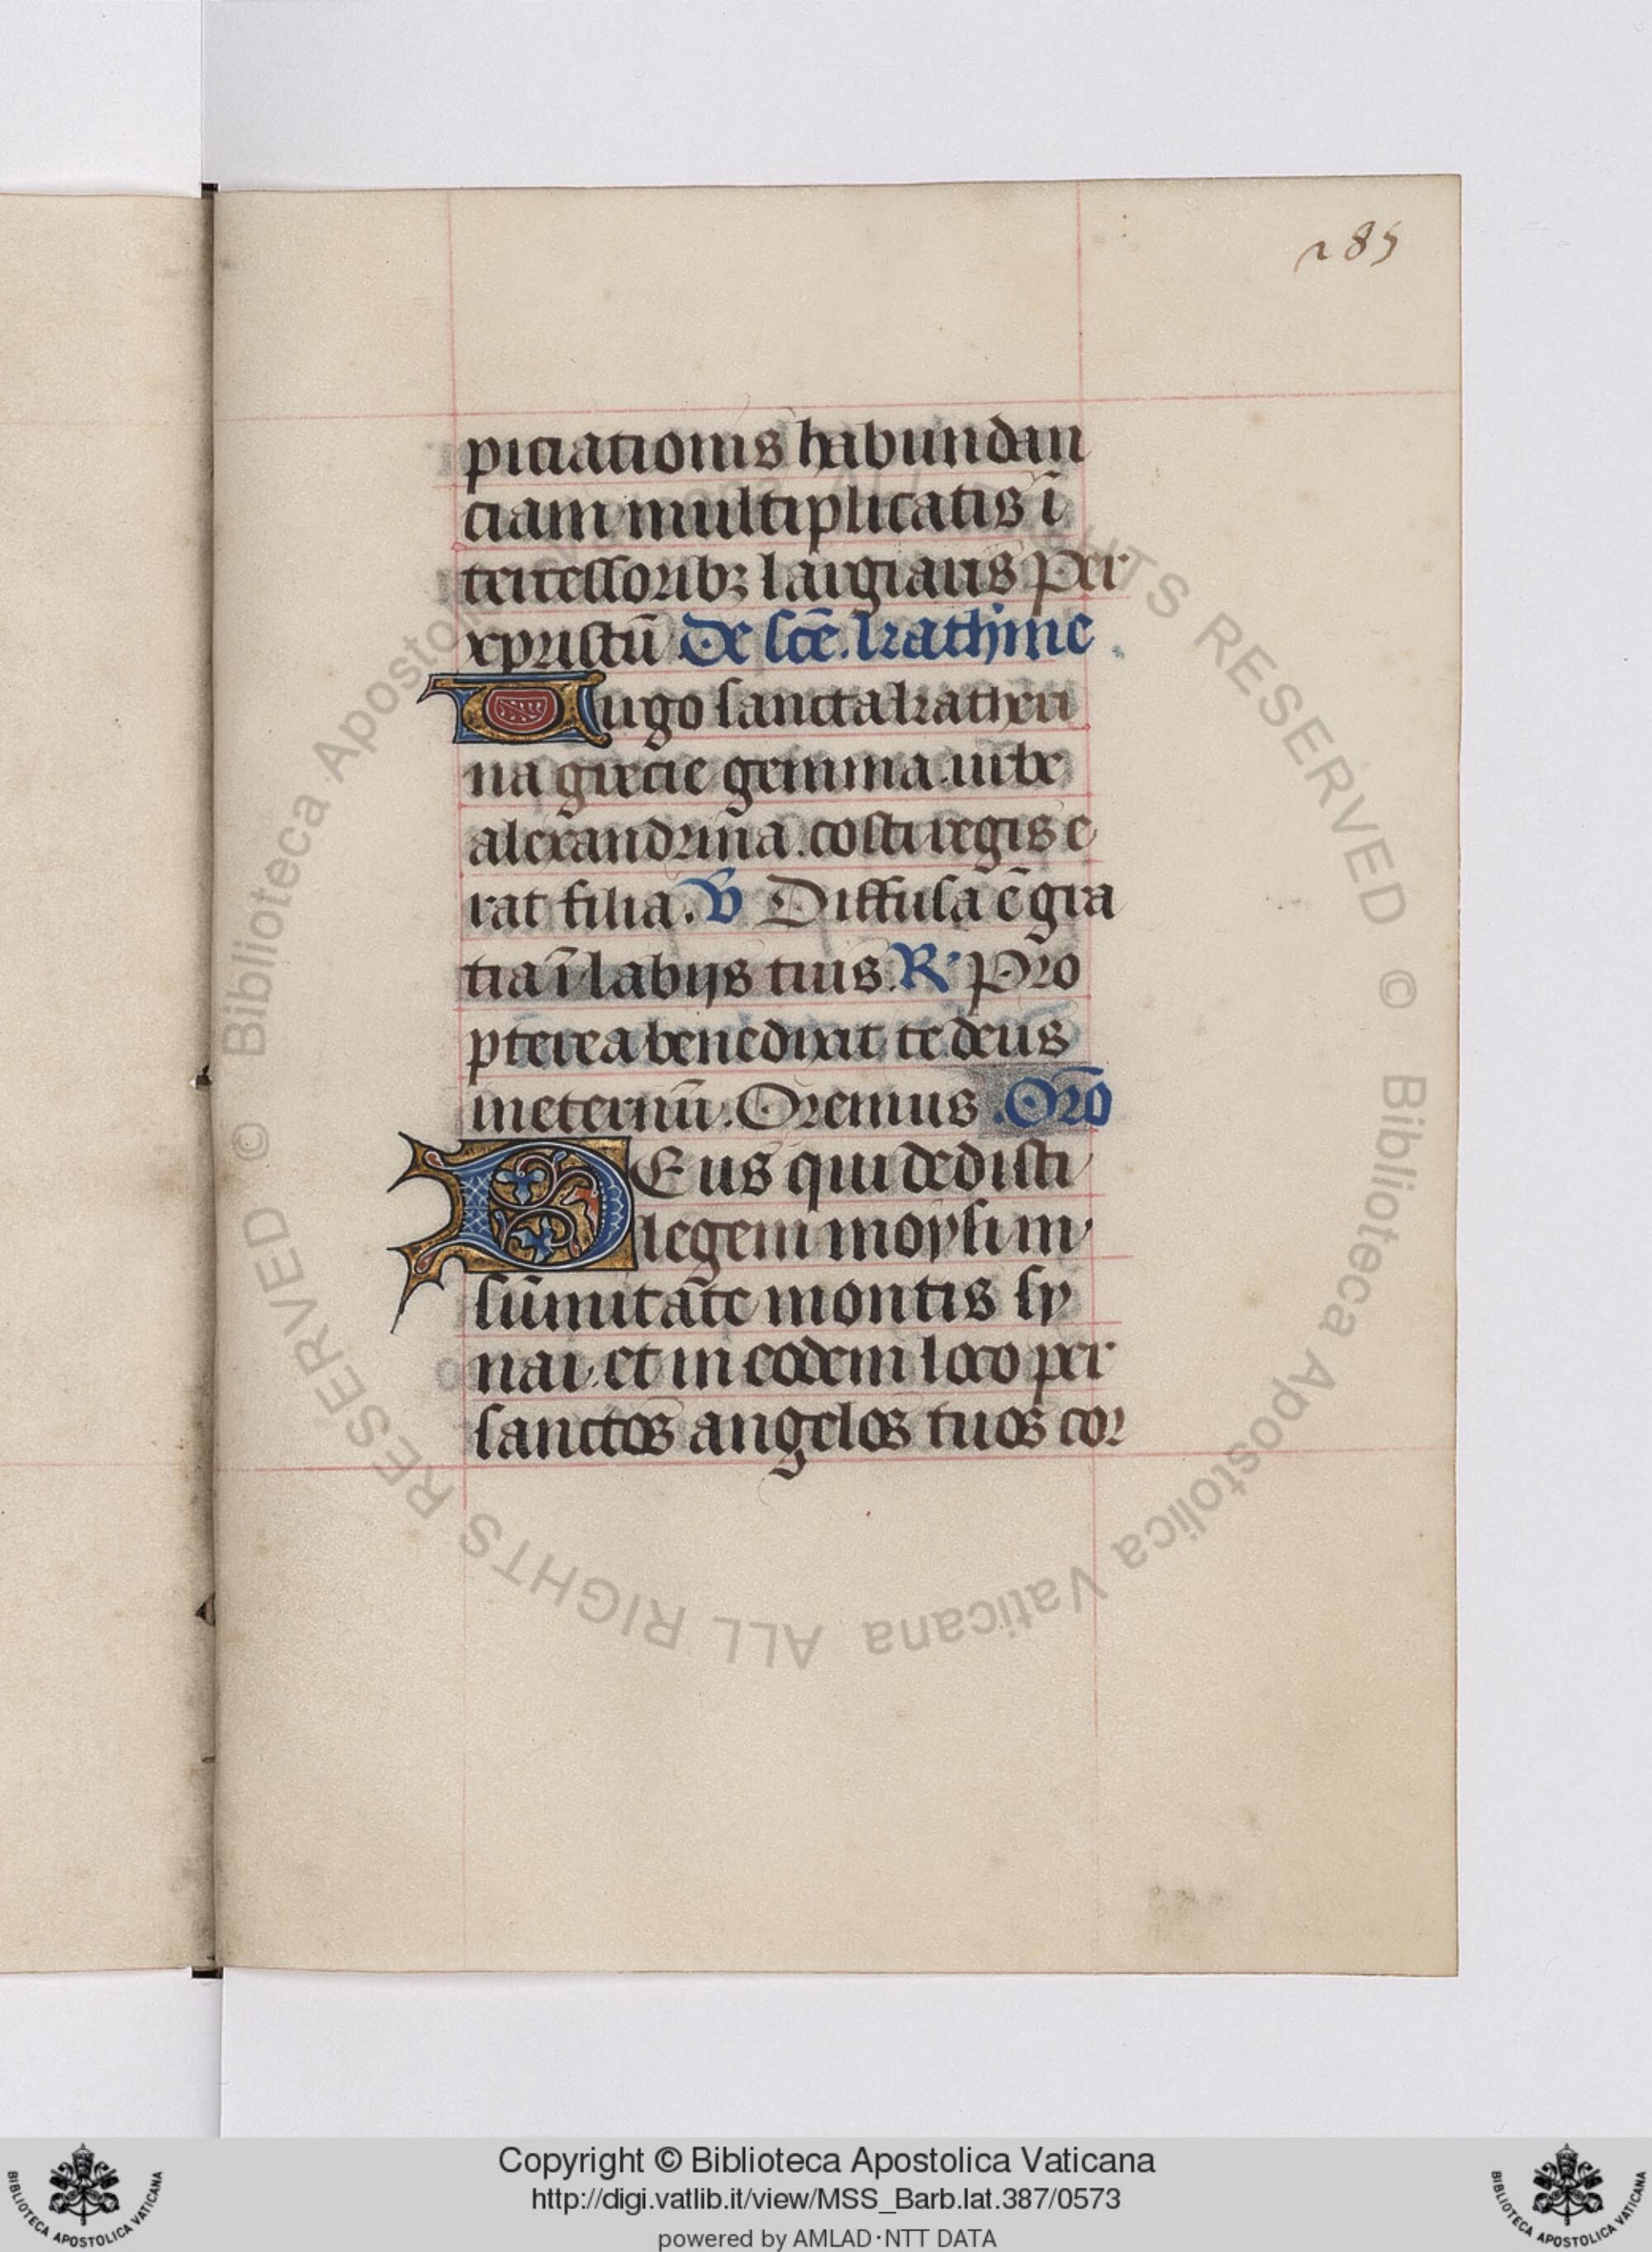 285
piciationis habundan
ciam multiplicatis ī
tercessoribꝫ largiaris Per
xpristū De scē. katherine.
Uirgo sancta katheri
na grecie gemma. urbe
alexandrina. costi regis e
rat filia. V Diffusa ē gra
tia ī labijs tuis. R Pro
pterea benedixit te deus
ineternū. Oremus. Oro
DEus qui dedisti
legem moysi in
sūmitate montis sy
nai. et in eodem loco per
sanctos angelos tuos cor
© Biblioteca Apostolica Vaticana ALL RIGHTS RESERVED
© Biblioteca Apostolica Vaticana ALL RIGHTS RESERVED
Copyright © Biblioteca Apostolica Vaticana
http://digi.vatlib.it/view/MSS_Barb.lat.387/0573
powered by AMLAD·NTT DATA
BIBLIOTECA APOSTOLICA VATICANA
BIBLIOTECA APOSTOLICA VATICANA